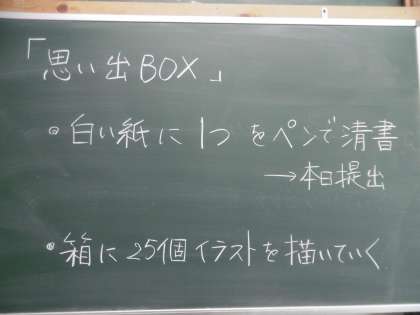 「思い出BOX」
・白い紙に1つをペンで清書
→本日提出
・箱に25個イラストを描いていく